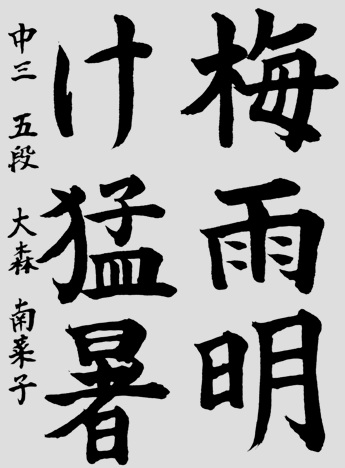 梅雨明
け猛暑
中三 五段 大森 南菜子